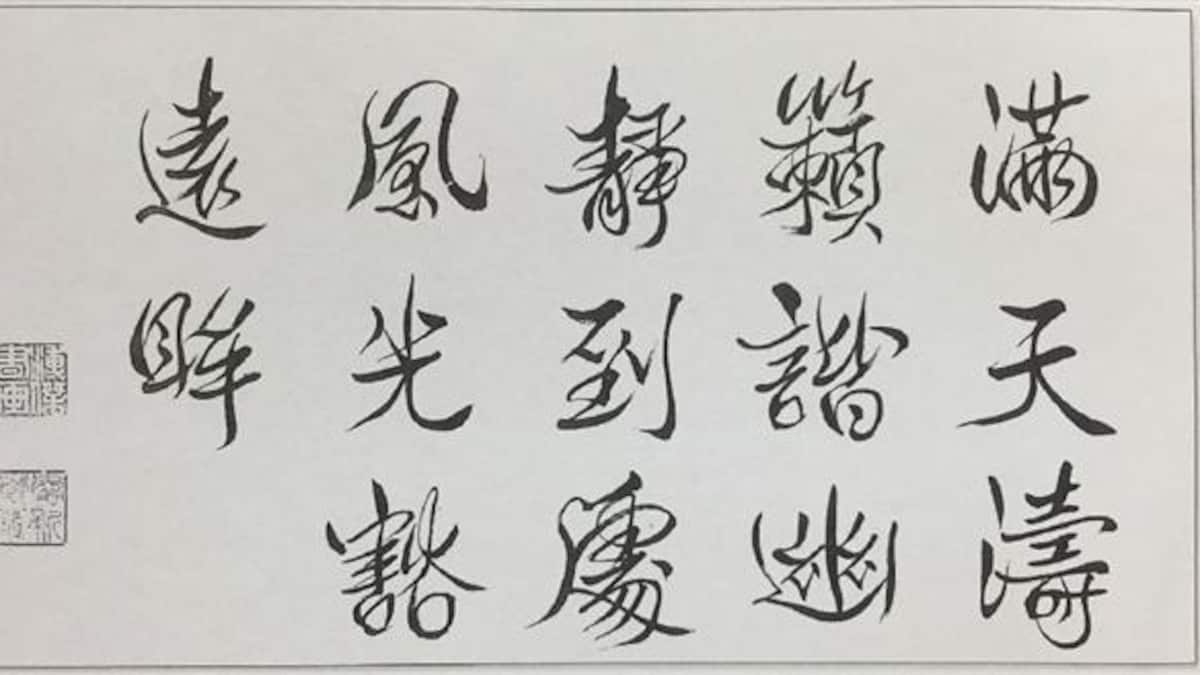 滿天濤
籟諧幽
靜到處
風光豁
遠眸